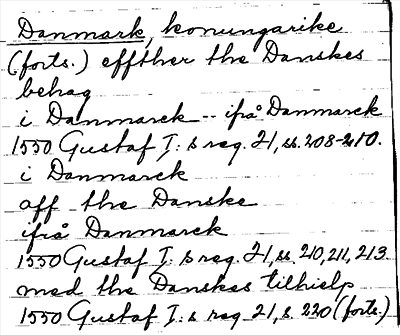 Danmark, konungarike
(forts.) effther the Danskes
behag
i Danmarck -- ifrå Danmarck
1550 Gustaf I: s reg. 21, ss. 208-210.
i Danmarck
aff the Danske
ifrå Danmarck
1550 Gustaf I: s reg. 21, ss. 210, 211, 213
med the Danskes tilhielp
1550 Gustaf I: s reg. 21, s. 220 (forts.)